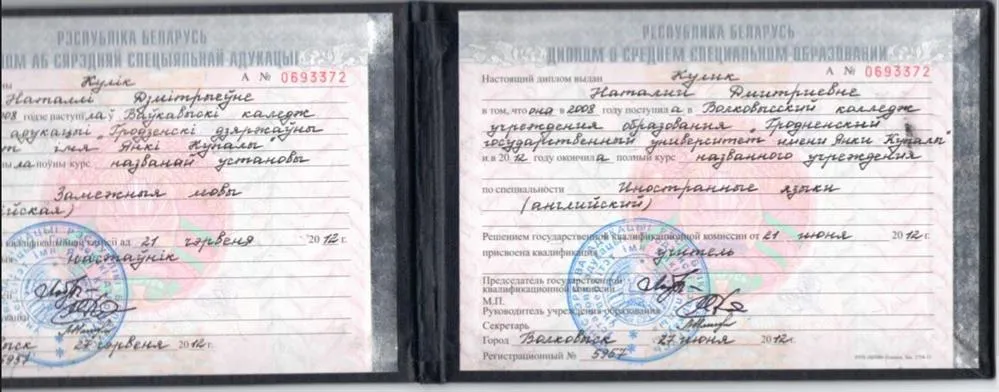 РЭСПУБЛІКА БЕЛАРУСЬ
ЛОМ АБ СЯРЭДНЯЙ СПЕЦЫЯЛЬНАЙ АДУКАЦЫІ
ны Кулік А № 0693372
Наталлі Дзмітрыеўне
008 годзе паступ ла ў Ваўкавыскі каледж
адукацыі "Гродзенскі дзяржаўны
т імя Янкі Купалы"
ла поўны курс названай установы
Замежныя мовы
ійская)
кваліфікацыйнай камісіі ад 21 чэрвеня 2012 г.
настаўнік
27 чэрвеня 2012 г.
5957
РЕСПУБЛИКА БЕЛАРУСЬ
ДИПЛОМ О СРЕДНЕМ СПЕЦИАЛЬНОМ ОБРАЗОВАНИИ
Настоящий диплом выдан Кулик А № 0693372
Наталии Дмитриевне
в том, что она в 2008 году поступил а в Волковысский колледж
учреждения образования "Гродненский
государственный университет имени Янки Купалы"
и в 2012 году окончил а полный курс названного учреждения
по специальности Иностранные языки
(английский)
Решением государственной квалификационной комиссии от 21 июня 2012 г.
присвоена квалификация учитель
Председатель государственной
квалификационной комиссии
М.П.
Руководитель учреждения образования
Секретарь
Город Волковыск 27 июня 2012 г.
Регистрационный № 5957